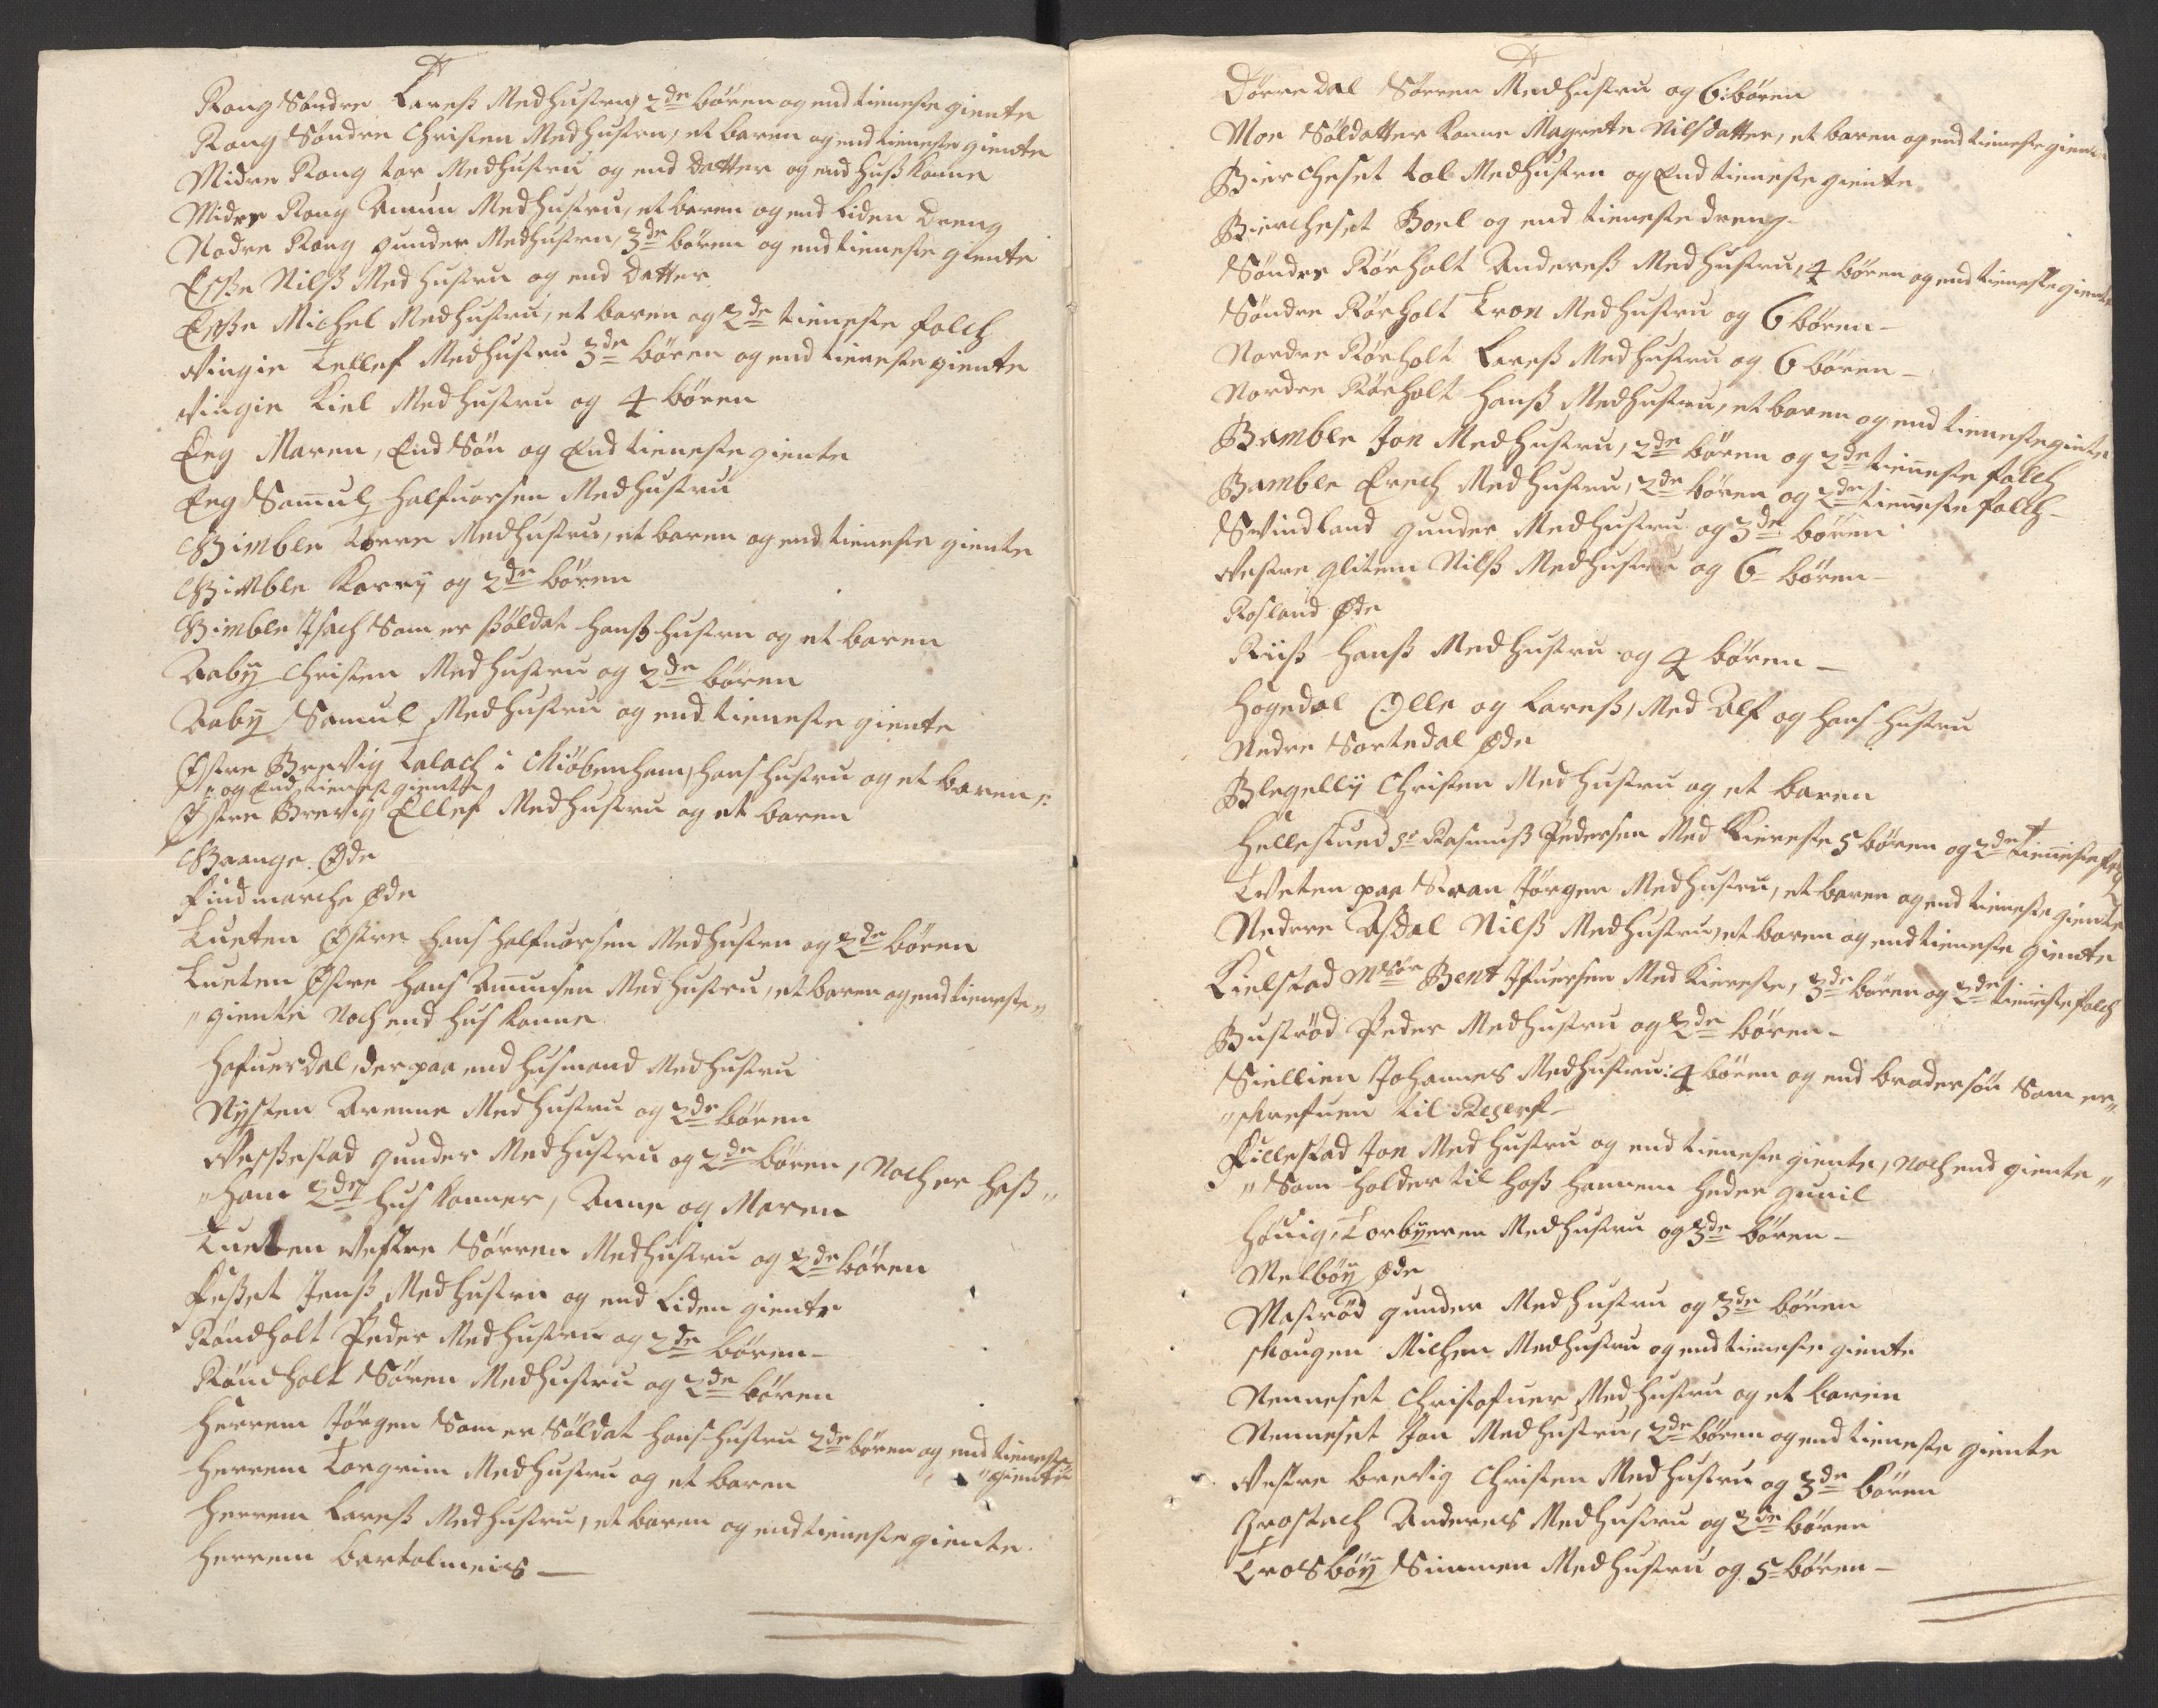 Rang Søndre Larss Medhustru, 2de børen og end tieneste giente
Rang Søndre Christen Medhustru, et baren og end tieneste giente
Midre Rang tor Medhustru og end datter og end husskonne
Midre Rang Amun Medhustru, et baren og end liden dreng
Nodre Rang gunder Medhustru, 3de børen og end tieneste giente
Erße Nilß Medhustru og end datter
Erße Michel Medhustru, et baren og 2de tieneste folch
Vingie Tellef Medhustru 3de børen og end tieneste giente
Vingie Kiel Medhustru og 4 børen
Eeg Maren, End Søn og End tieneste giente
Eeg Samuel halfuorsen Medhustru
Bimble torre Medhustru, et baren og end tieneste giente
Bimble Karrij og 2de børen
Bimble Isach Som er ßøldat hanß hustru og et baren
Aabÿ Christen Medhustru og 2de børen
Aabÿ Samul Medhustru og end tieneste giente
Østre Brevig Talach i Kiøbenham, hans hustru og et baren,
og End tienest giente
Østre Brevig Ellef Medhustru og et baren
Baange Øde
Findmarche øde
Tueten Østre hans halfuorsen Medhustru og 2de børen
Tueten Østre hans Amunsen Medhustru, et baren og end tieneste
giente Noch end hus konne
hofuerdal, der paa end husmand Medhustru
Nÿsten Arenne Medhustru og 2de børen
Vesßestad gunder Medhustru og 2de børen, Noch er hoß
ham 2de hus konner, Anne og Maren
Tueten Vestre Sørren Medhustru og 2de børen
Fußet Jenß Medhustru og end liden giente
Røndholt Peder Medhustru og 2de børen
Røndholt Søren Medhustru og 2de børen
herrem Jørgen Som er Søldat hans hustru 2de børen og end tieneste
giente
herrem Torgrim Medhustru og et baren
herrem Larss Medhustru, et baren og end tieneste giente
herrem bartolmeis
Dørredal Sørren Medhustru og 6: børen
Moe Søldatter konne Magrete Nilsdatter, et baren og end tieneste giente
Bierckeset tol Medhustru og End tieneste giente
Bierckeset Boel og end tieneste dreng
Søndre Rørholt Andereß Medhustru, 4 børen og end tieneste giente
Søndre Rørholt Tron Medhustru og 6 børen
Nordre Rørholt Larss Medhustru og 6 børen
Nordre Rørholt hanß Medhustru, et baren og end tieneste giente
Bamble Jon Medhustru, 2de børen og 2de tieneste folch
Bamble Erech Medhustru, 2de børen og 2de tieneste folch
Svindland gunder Medhustru og 3de børen
Vestre glitem Nilß Medhustru og 6 børen
Rosland Øde
Riiß hanß Medhustru og 4 børen
hogedal Olle og Larss, Med Alf og hans hustru
Nedre Sortedal øde
Blegellij Christen Medhustru og et baren
hellestued Sr Rasmuß Pedersen Med Kiereste 5 børen og 2de tieneste folch
Tveten paa Stran Jørgen Medhustru, et baren og end tieneste giente
Nedere Asdal Nilß Medhustru, et baren og end tieneste giente
Kielstad Msør Bent Ifuersen Med Kiereste, 3de børen og 2de tieneste folch
Bustrød Peder Medhustru og 2de børen
Siellien Johannes Medhustru: 4 børen og end brodersøn Som er
skrefuen til Reserf
Fillestad Jon Medhustru og end tieneste giente, Noch end giente
Som holder til hoß hannem heder gunil
høuig, Torbÿeren Medhustru og 3de børen
Melbøÿ øde
Mastrød gunder Medhustru og 3de børen
skougen Michem Medhustru og end tieneste giente
Nenneset Christofuer Medhustru og et baren
Nenneset Jon Medhustru, 2de børen og end tieneste giente
Vestre brevig Christen Medhustru og 3de børen
Grostach Anderes Medhustru og 2de børen
Trosbøÿ Simmen Medhustru og 5 børen